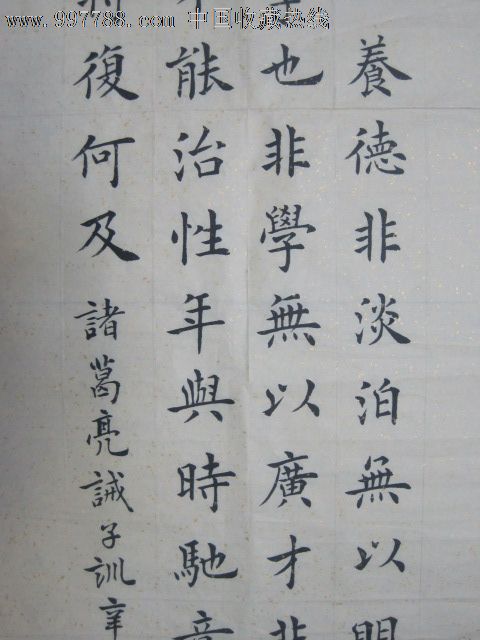 www.997788.com 中国收藏热线
養德非淡泊無以明
也非學無以廣才非
能治性年與時馳意
復何及諸葛亮誡子訓辛